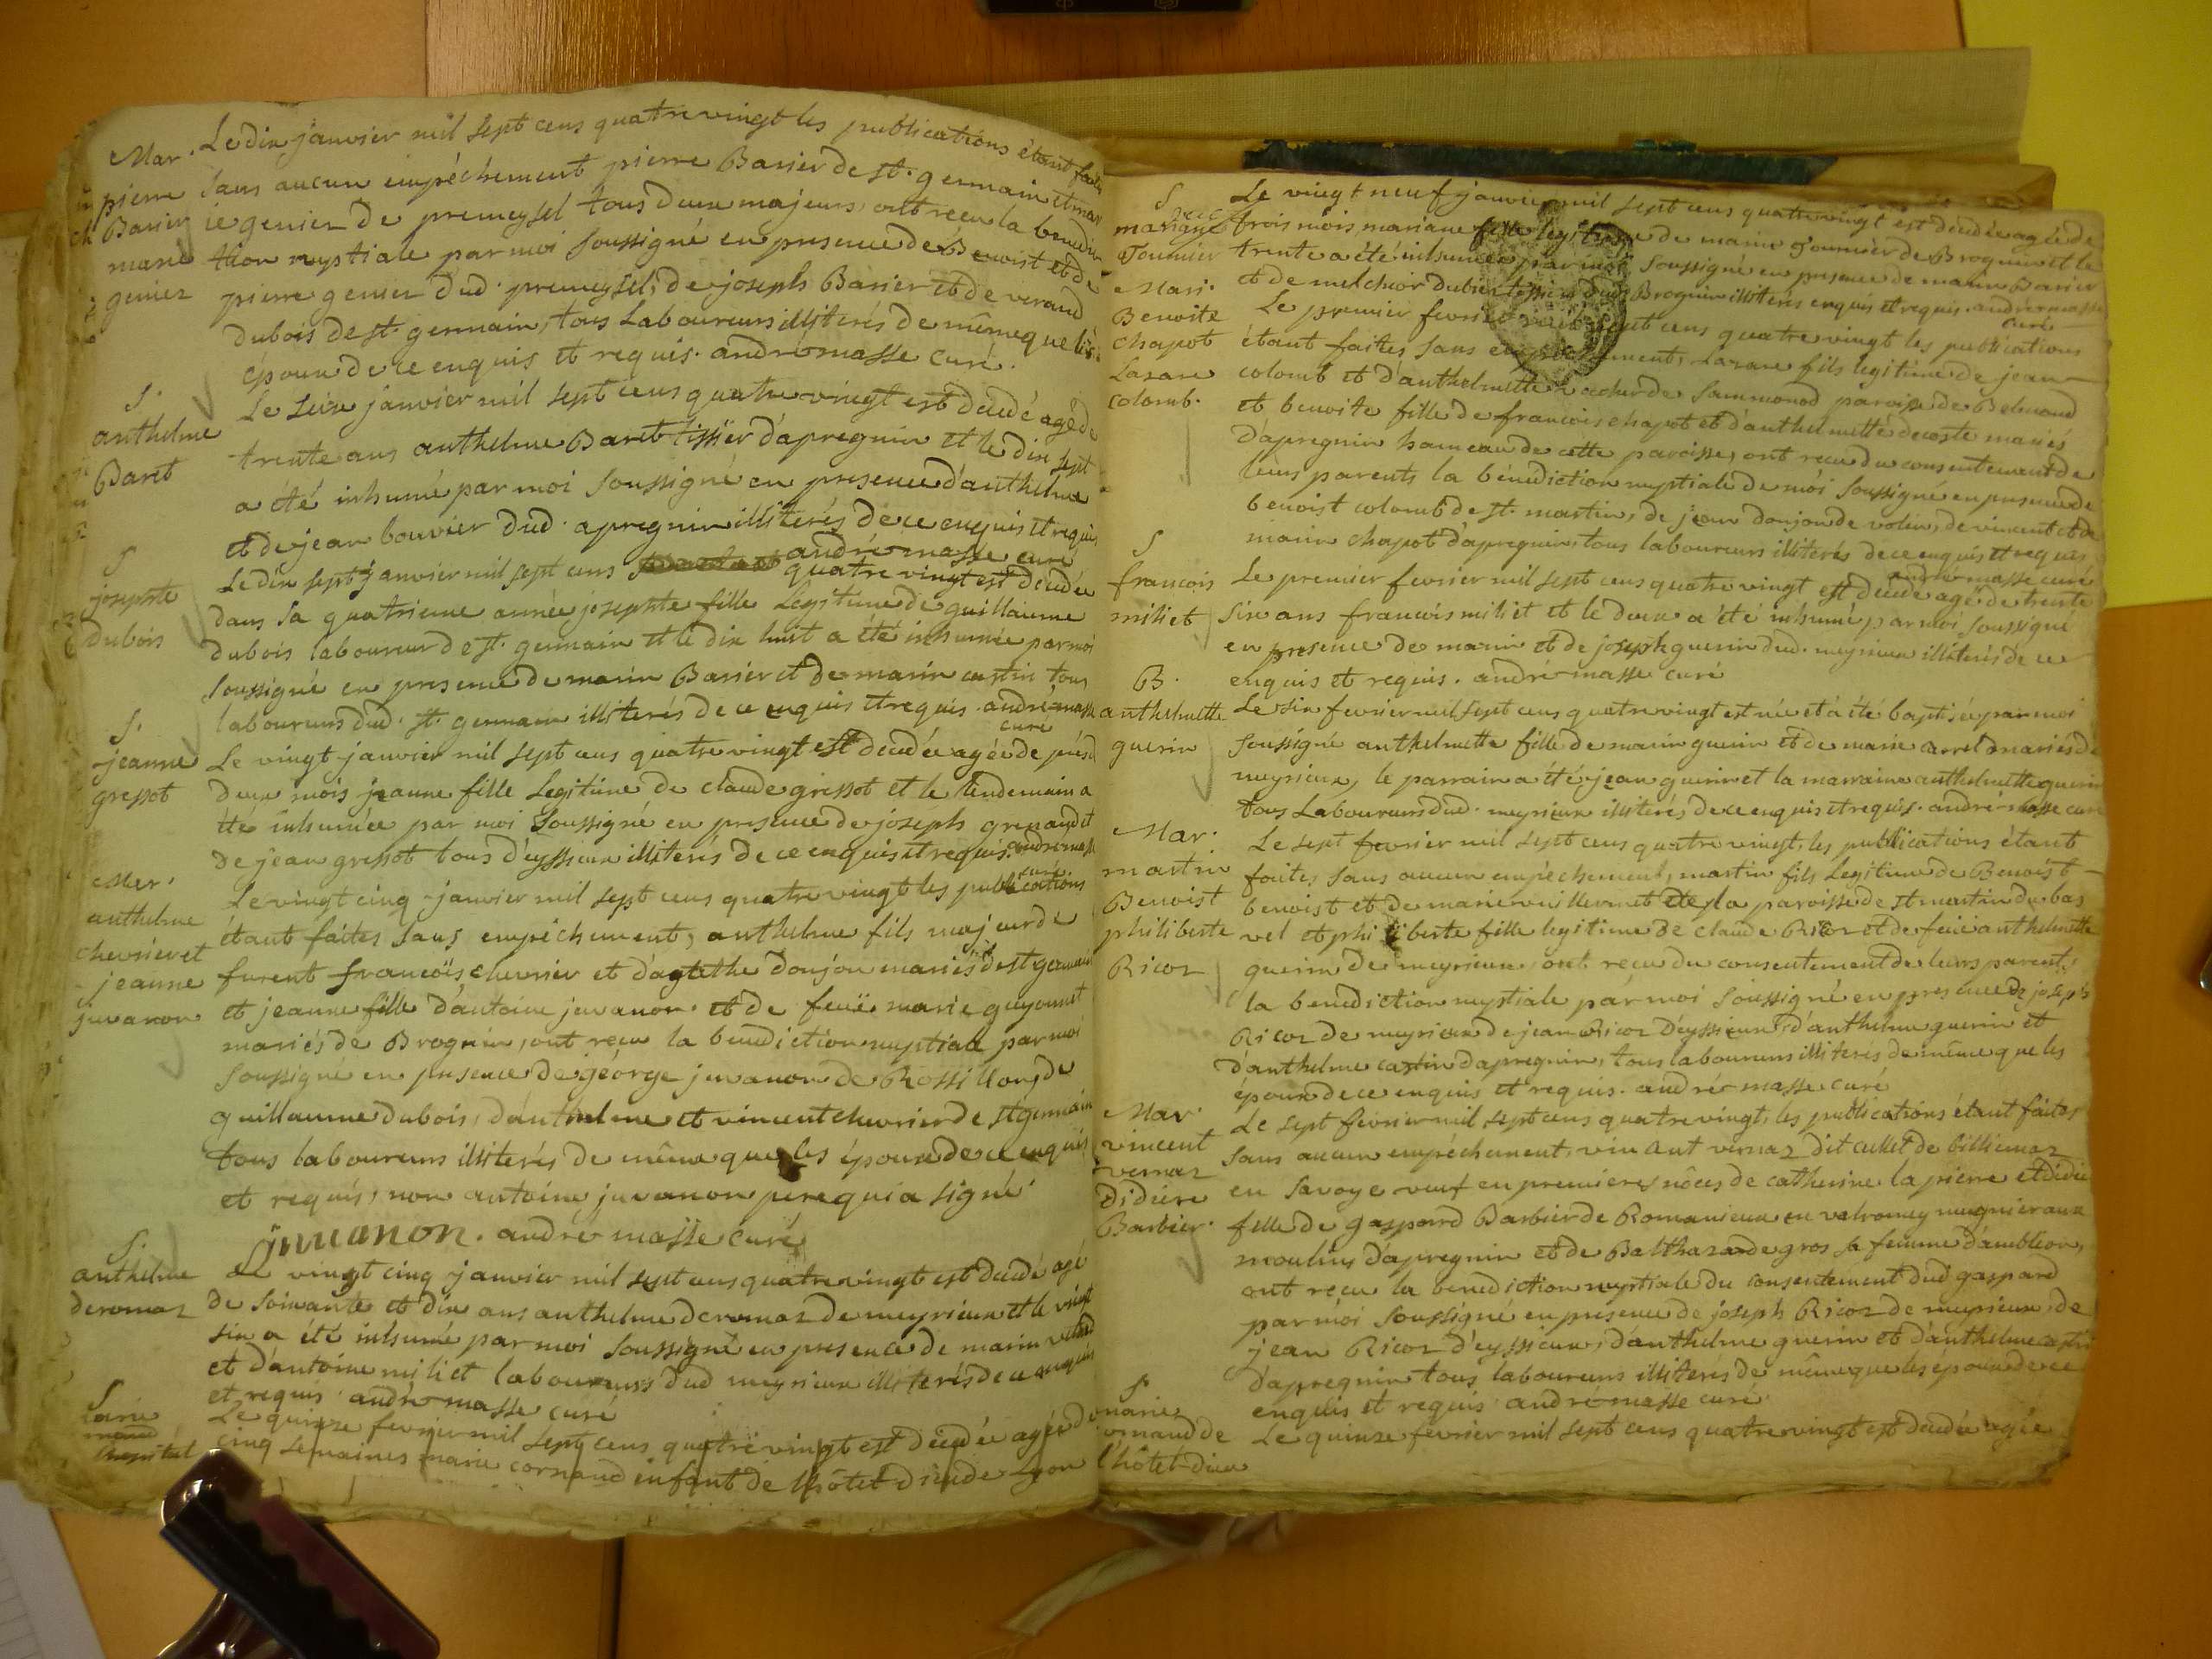 Mar.
pierre
Barier
marie
genier
Le dix janvier mil sept cens quatre vingt les publications étant faites
sans aucun empéchement pierre Barier de st. germain et mar
ie genier de premeysel tous deux majeurs ont recu la benedic
tion nuptiale par moi soussigné en presence de Benoist et de
pierre genier dud. premeysel, de joseph Barier et de verand
dubois de st. germain, tous laboureurs illiterés de même que les
époux de ce enquis et requis. andré masse curé.
S.
anthelme
Baret
Le seize janvier mil sept cens quatre vingt est decedé agé de
trente ans anthelme Baret tissier d'apregnin et le dix sept
a été inhumé par moi soussigné en presence d'anthelme
et de jean bouvier dud. apregnin illiterés de ce enquis et requis
andré masse curé
S
josephte
dubois
Le dix sept janvier mil sept cens quatre vingt est decedée
dans sa quatrieme année josephte fille Legitime de guillaume
dubois laboureur de st. germain et le dix huit a été inhumée par moi
soussigné en presence de marin Barier et de marin castin tous
laboureurs dud. st. germain illiterés de ce enquis et requis. andré masse
curé
S.
jeanne
gressot
Le vingt janvier mil sept cens quatre vingt est decedée agée de près d
deux mois jeanne fille Legitime de claude gressot et le lendemain a
été inhumée par moi soussigné en presence de joseph grenaud et
de jean gressot tous d'eyssieux illiterés de ce enquis et requis. andré masse
curé
Mar.
anthelme
chevrier et
jeanne
juvanon
Le vingt cinq janvier mil sept cens quatre vingt les publications
étant faites sans empéchement, anthelme fils majeur de
furent francois chevrier et d'agathe donjon mariés de st germain
et jeanne fille d'antoine juvanon et de feuë marie guyonnet
mariés de Brognin, ont recu la benediction nuptiale par moi
soussigné en presence de george juvanon de Rossillon, de
guillaume dubois, d'anthelme et vincent chevrier de st germain
tous laboureurs illiterés de même que les époux de ce enquis
et requis, non antoine juvanon pere qui a signé.
juvanon. andré masse curé
S.
anthelme
deromaz
Le vingt cinq janvier mil sept cens quatre vingt est decedé agé
de soixante et dix ans anthelme deromaz de meyrieux et le vingt
six a été inhumé par moi soussigné en presence de marin
et d'antoine miliet laboureurs dud meyrieux illiterés de ce enquis
et requis andré masse curé
S
Le quinze fevrier mil sept cens quatre vingt est decedée agée de
cinq semaines marie cornand enfant de l'hôtel-dieu de Lyon
S
mariane
Tournier
Le vingt neuf janvier mil sept cens quatre vingt est decedée agée de
trois mois mariane fille legitime de marin Tournier de Brognin et le
trente a été inhumée par moi soussigné en presence de marin Barier
et de melchior dubiet dud. Brognin illiterés enquis et requis. andré masse
curé
Mari.
Benoite
chapot
Lazare
colomb.
Le premier fevrier mil sept cens quatre vingt les publications
étant faites sans empéchement, Lazare fils legitime de jean
colomb et d'anthelmette de Sammonod paroisse de Belmond
et benoite fille de francois chapot et d'anthelmette decoste mariés
d'apregnin hameau de cette paroisse, ont recu du consentement de
leurs parents la bénediction nuptiale de moi soussigné en presence de
benoist colomb de st. martin, de jean donjon de volien, de vincent et de
marin chapot d'apregnin, tous laboureurs illiterés de ce enquis et requis
andré masse curé
S
francois
miliet
Le premier fevrier mil sept cens quatre vingt est decedé agé de trente
six ans francois miliet et le deux a été inhumé par moi soussigné
en presence de marin et de joseph guerin dud. meyrieux illiterés de ce
enquis et requis. andré masse curé
B.
anthelmette
guerin
Le six fevrier mil sept cens quatre vingt est née et a été baptisée par moi
soussigné anthelmette fille de marin guerin et de marie arrel mariés de
meyrieux, le parrain a été jean guerin et la marraine anthelmette guerin
tous Laboureurs dud. meyrieux illiterés de ce enquis et requis. andré masse curé
Mar.
martin
Benoist
philiberte
Ricoz
Le sept fevrier mil sept cens quatre vingt, les publications étant
faites sans aucun empéchement, martin fils Legitime de Benoist
benoist et de marie vuillermet de la paroisse de st martin du bas
vel et philiberte fille legitime de claude Ricoz et de feuë anthelmette
guerin de meyrieux, ont recu du consentement de leurs parents
la benediction nuptiale par moi soussigné en presence de joseph
Ricoz de meyrieux de jean Ricoz d'eyssieux, d'anthelme guerin et
d'anthelme castin d'apregnin, tous laboureurs illiterés de même que les
époux de ce enquis et requis. andré masse curé
Mar.
vincent
vernaz
Didiere
Barbier.
Le sept fevrier mil sept cens quatre vingt, les publications étant faites
sans aucun empéchement, vincent vernaz dit cullet de billiemaz
en savoye veuf en premieres nôces de catherine la pierre et didiere
fille de gaspard Barbier de Romanieux en valromey mugnier aux
moulins d'apregnin et de Balthazarde gros sa femme d'ambleon,
ont recu la benediction nuptiale du consentement dud gaspard
par moi soussigné en presence de joseph Ricoz de meyrieux, de
jean Ricoz d'eyssieux, d'anthelme guerin et d'anthelme castin
d'apregnin tous laboureurs illiterés de même que les époux de ce
enquis et requis andré masse curé
S
marie
cornand de
l'hôtel-dieu
Le quinze fevrier mil sept cens quatre vingt est decedée agée